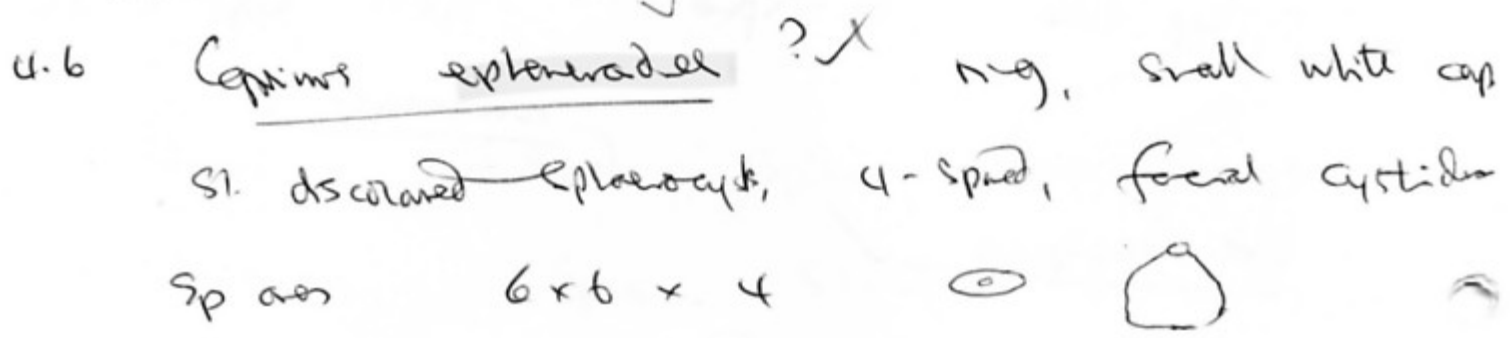 4.6 Coprinus ephemeroides ? ✓ ring, small white cap
Sl. discoloured sphaerocysts, 4-spored, facial cystidia
Spores 6 x 6 x 4